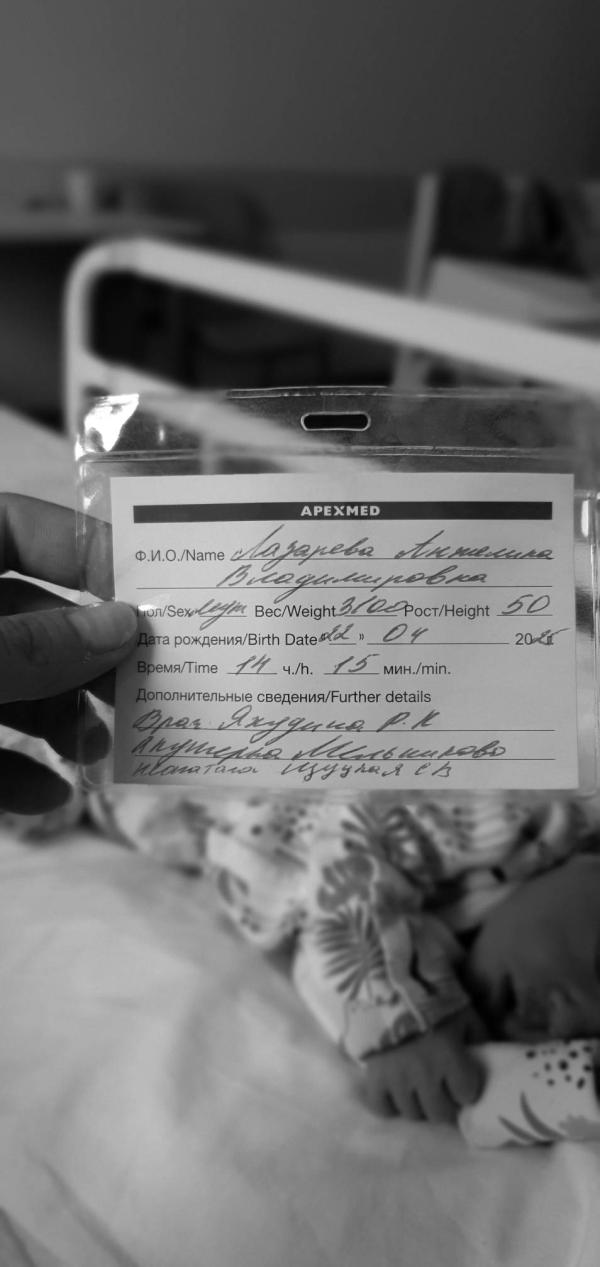 APEXMED
Ф.И.О./Name Лазарева Анжелика
Владимировна
Пол/Sex Вес/Weight 3100 Рост/Height 50
Дата рождения/Birth Date «22» 04 2025
Время/Time 14 ч./h. 15 мин./min.
Дополнительные сведения/Further details
Врач Яхудина Р. К
Акушерка Мельникова